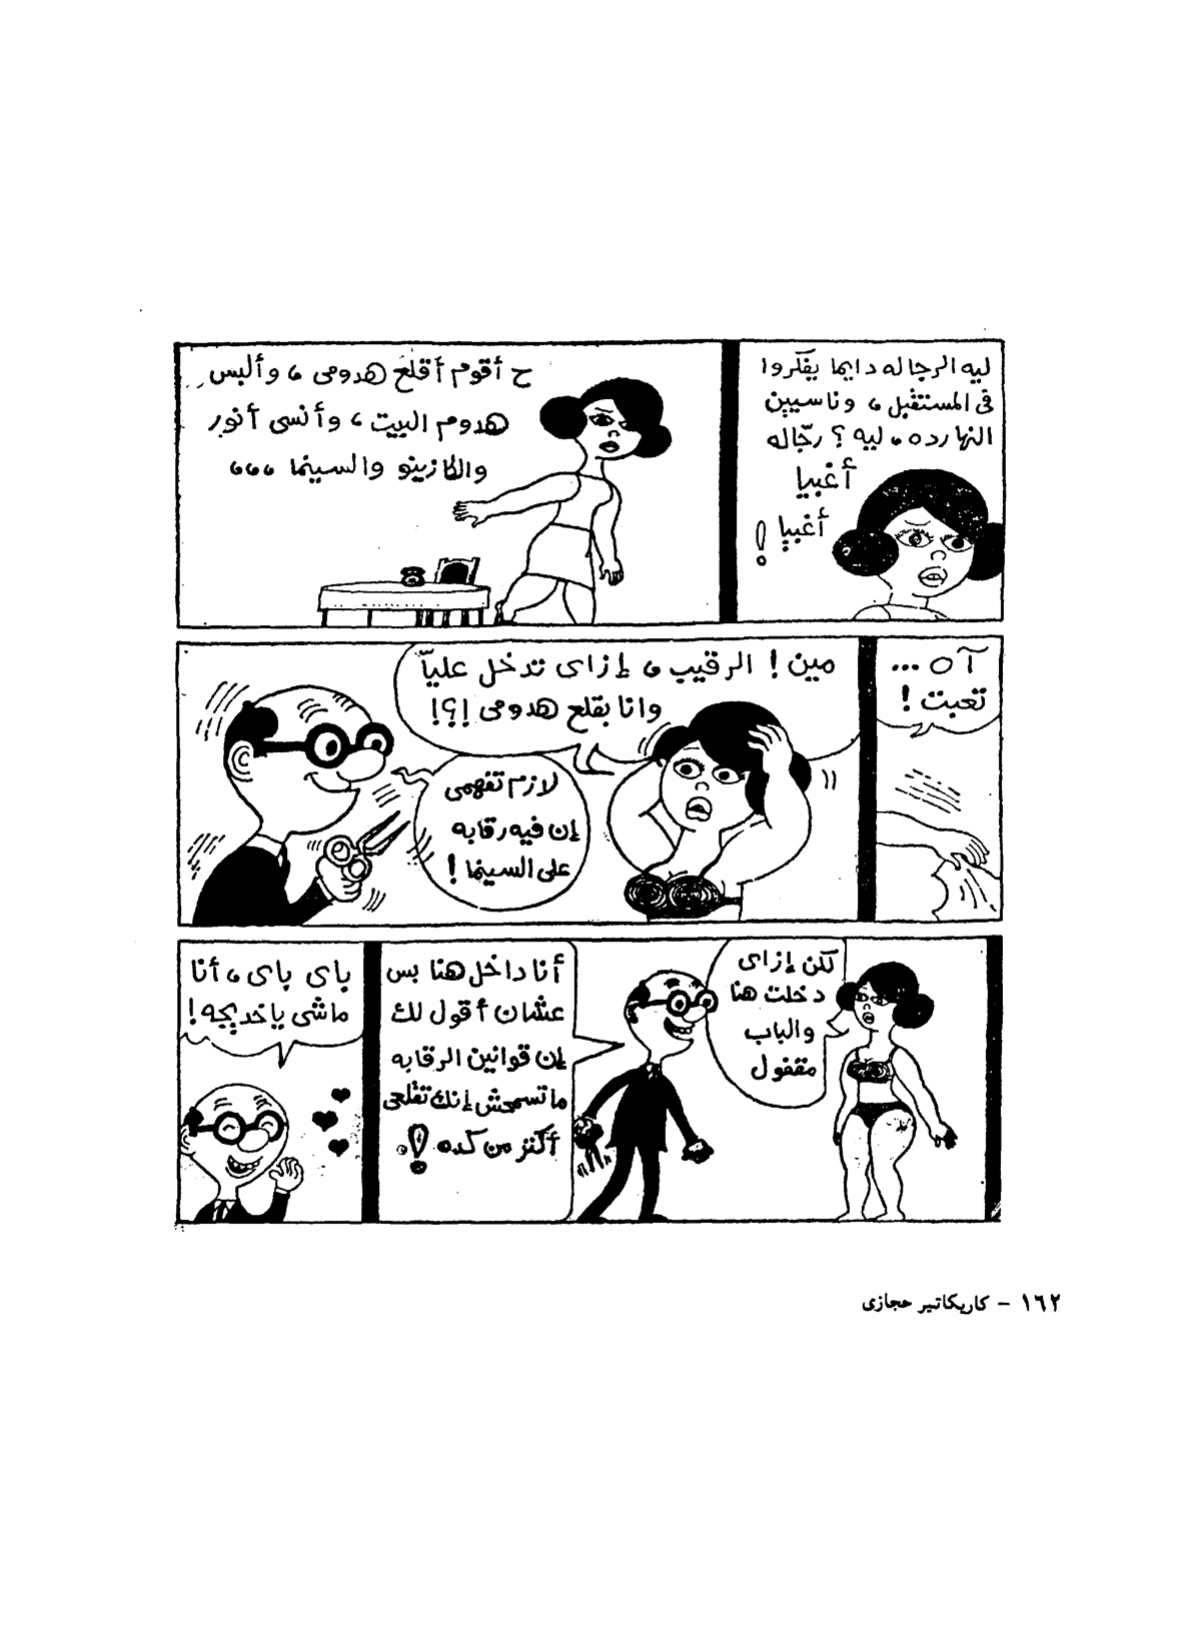 ليه الرجاله دايما يفكّروا
فى المستقبل، وناسيين
النهارده، ليه؟ رجّاله
أغبيا
أغبيا !
ح أقوم أقلع هدومى، وألبس
هدوم البيت، وأنسى أنور
والكازينو والسينما ،،،
آه ...
تعبت !
مين ! الرقيب، إزاى تدخل علياّ
وانا بقلع هدومى !؟!
لازم تفهمى
إن فيه رقابه
على السينما !
لكن إزاى
دخلت هنا
والباب
مقفول
أنا داخل هنا بس
عشان أقول لك
إن قوانين الرقابه
ماتسمحش إنك تقلعى
أكتر من كده !
باى باى، أنا
ماشى ياخديجه !
١٦٢ - كاريكاتير حجازى